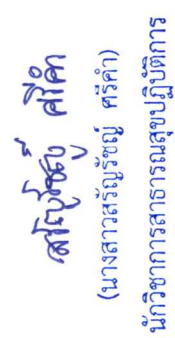 สรัญรัชญ์ ศรีคำ
(นางสาวสรัญรัชญ์ ศรีคำ)
นักวิชาการสาธารณสุขปฏิบัติการ